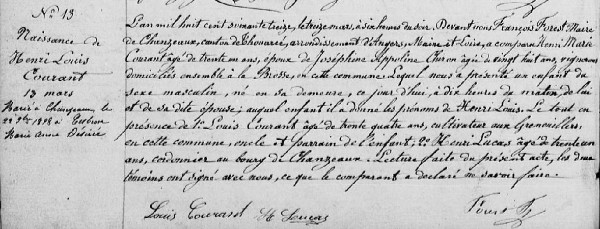 No. 13
Naissance de
Henri Louis
Courant
13 mars
Marié à Chanzeaux, le
22 8bre 1898 à
Marie Anne Désirée
L'an mil huit cent soixante treize, le treize mars, à six heures du soir. Devant nous François Forest Maire
de Chanzeaux, canton de Thouarcé, arrondissement d'Angers, Maine et Loire, a comparu Henri Marie
Courant âgé de trente un ans, époux de Joséphine Appoline Chiron âgée de vingt huit ans, vignerons
domiciliés ensemble à la Brosse, en cette commune. Lequel nous a présenté un enfant du
sexe masculin, né en sa demeure, ce jour d'hui, à dix heures du matin, de lui
et de sa dite épouse; auquel enfant il a donné les prénoms de Henri Louis. Le tout en
présence de 1° Louis Courant âgé de trente quatre ans, cultivateur aux Grenouillers,
en cette commune, oncle et parrain de l'enfant, 2° Henri Lucas âgé de trente un
ans, cordonnier au bourg de Chanzeaux. Lecture faite du présent acte, les deux
témoins ont signé avec nous, ce que le comparant a déclaré ne savoir faire.
Louis Courant H Lucas Forest